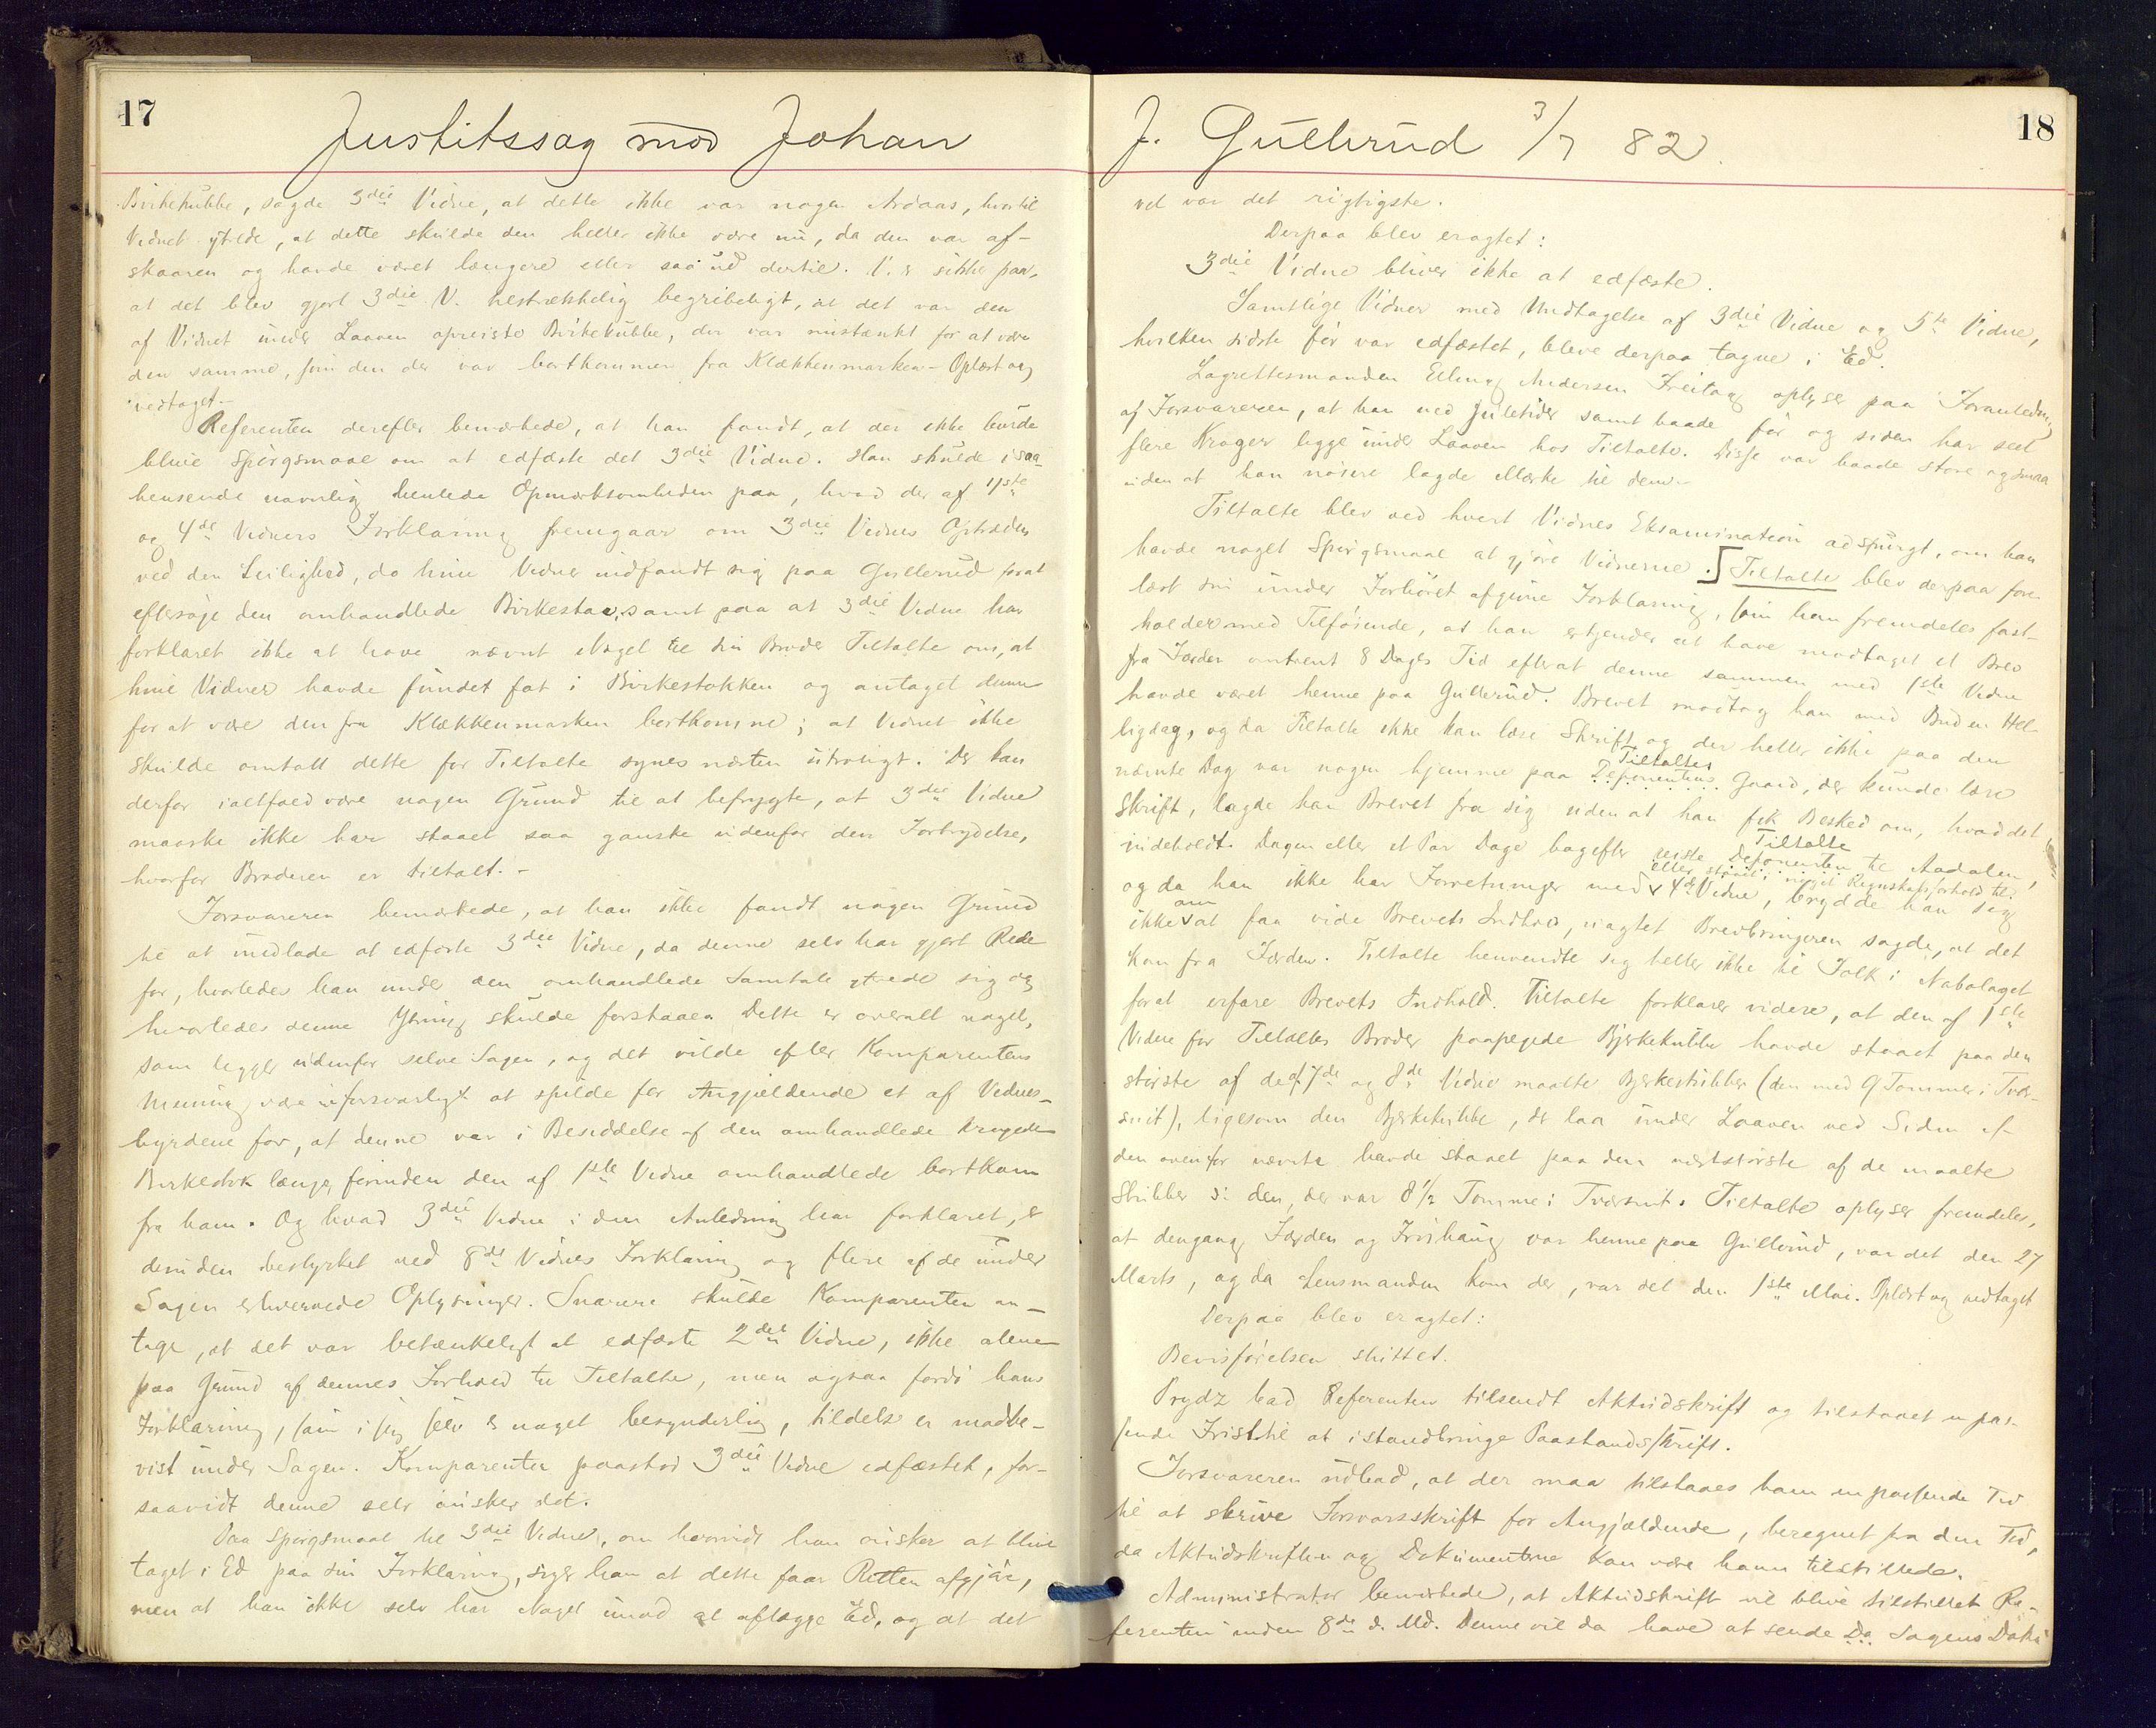 17
Justitssag mod Johan
Birkekubbe, sagde 3die Vidne, at dette ikke var nogen Aadaas, hvortil
Vidnet ytrede, at dette skulde den heller ikke være nu, da den var af-
skaaren og havde været længere eller saa ud dertil. V. er sikker paa,
at det blev gjort 3die V. tilstrækkelig begribeligt, at det var den
af Vidnet under Laaven opreiste Birkekubbe, der var mistænkt for at være
den samme, som den der var bortkommen fra Klækkenmarken - Oplæst og
vedtaget. -
Referenten derefter bemærkede, at han fandt, at der ikke burde
blive Spørgsmaal om at edfæste det 3die Vidne. Han skulde i saa-
henseende navnlig henlede Opmærksomheden paa, hvad der af 1ste
og 4de Vidners Forklaring fremgaar om 3die Vidnes Optræden
ved den Leilighed, da hine Vidner indfandt sig paa Gullerud forat
eftersøge den omhandlede Birkestok, samt paa at 3die Vidne har
forklaret ikke at have nævnt Noget til sin Broder Tiltalte om, at
hine Vidner havde fundet fat i Birkestokken og antaget denne
for at være den fra Klækkenmarken bortkomne; at Vidnet ikke
skulde omtalt dette for Tiltalte synes næsten utroligt. Der kan
derfor ialtfald være nogen Grund til at befrygte, at 3die Vidne
maaske ikke har staaet saa ganske udenfor den Forbrydelse,
hvorfor Broderen er tiltalt. -
Forsvareren bemærkede, at han ikke fandt nogen Grund
til at undlade at edfæste 3die Vidne, da denne selv har gjort Rede
for, hvorledes han under den omhandlede Samtale ytrede sig og
hvorledes denne Ytring skulde forstaaes. Dette er overalt noget,
som ligger udenfor selve Sagen, og det vilde efter Komparentens
Mening være uforsvarligt at spilde for Angjældende et af Vidnes-
byrdene for, at denne var i Besiddelse af den omhandlede krogede
Birkestok længe forinden den af 1ste Vidne omhandlede bortkom
fra ham. Og hvad 3die Vidne i den Anledning har forklaret, er
desuden bestyrket ved 8de Vidnes Forklaring og flere af de under
Sagen erhvervede Oplysninger. Snarere skulde Komparenten an-
tage, at det var betænkeligt at edfæste 2det Vidne, ikke alene
paa Grund af dennes Forhold til Tiltalte, men ogsaa fordi hans
Forklaring, som i sig selv er noget besynderlig, tildels er modbe-
vist under Sagen. Komparenten paastod 3die Vidne edfæstet, for-
saavidt denne selv ønsker det.
Paa Spørgsmaal til 3die Vidne, om hvorvidt han ønsker at blive
taget i Ed paa sin Forklaring, siger han at dette faar Retten afgjøre,
men at han ikke selv har Noget imod at aflægge Ed, og at det
J. Gullerud 3/7 82.
18
vel var det rigtigste.
Derpaa blev eragtet:
3die Vidne bliver ikke at edfæste.
Samtlige Vidner med Undtagelse af 3die Vidne og 5te Vidne,
hvilken sidste før var edfæstet, bleve derpaa tagne i Ed.
Lagrettesmanden Elling Andersen Freitag oplyser paa Foranledning
af Forsvareren, at han ved Juletider samt baade før og siden har seet
flere Kroger ligge under Laaven hos Tiltalte. Disse var baade store og smaa
uden at han nøiere lagde Mærke til dem. -
Tiltalte blev ved hvert Vidnes Eksamination adspurgt, om han
havde noget Spørgsmaal at gjøre Vidnerne.] Tiltalte blev derpaa fore-
læst sin under Forhøret afgivne Forklaring, som han fremdeles fast-
holder med Tilføiende, at han erkjender at have modtaget et Brev
fra Førden omtrent 8 Dages Tid efterat denne sammen med 1ste Vidne
havde været henne paa Gullerud. Brevet modtog han med Bud en Hel-
ligdag, og da Tiltalte ikke kan læse Skrift og der heller ikke paa den
nævnte Dag var nogen hjemme paa Deponentens Tiltaltes Gaard, der kunde læse
Skrift, lagde han Brevet fra sig uden at han fik Besked om, hvad det
indeholdt. Dagen eller et Par Dage bagefter reiste Deponenten Tiltalte til Aadalen,
og da han ikke har Forretninger med eller staaet i noget Regnskabsforhold til 4de Vidne, brydde han sig
ikke om at faa vide Brevets Indhold, uagtet Brevbringeren sagde, at det
kom fra Førden. Tiltalte henvendte sig heller ikke til Folk i Nabolaget
forat erfare Brevets Indhold. Tiltalte forklarer videre, at den af 1ste
Vidne for Tiltaltes Broder paapegede Bjerkekubbe havde staaet paa den
største af de af 7de og 8de Vidne maalte Bjerkestubber (den med 9 Tommer i Tvær-
snit), ligesom den Bjerkekubbe, der laa under Laaven ved Siden af
den ovenfor nævnte havde staaet paa den næststørste af de maalte
Stubber ɔ: den, der var 8½ Tomme i Tværsnit. Tiltalte oplyser fremdeles,
at dengang Førden og Frøshaug var henne paa Gullerud, var det den 27
Marts, og da Lensmanden kom der, var det den 1ste Mai. Oplæst og vedtaget
Derpaa blev eragtet:
Bevisførelsen sluttet.
Prydz bad Referenten tilsendt Aktudskrift og tilstaaet en pas-
sende Frist til at istandbringe Paastandsskrift.
Forsvareren udbad, at der maa tilstaaes ham en passende Tid
til at skrive Forsvarsskrift for Angjældende, beregnet fra den Tid,
da Aktudskriften og Dokumenterne kan være ham tilstillede.
Administrator bemærkede, at Aktudskrift vil blive tilstillet Re-
ferenten inden 8de d. Md. Denne vil da have at sende Do Sagens Doku